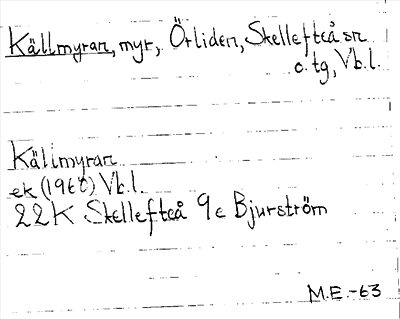 Källmyran, myr, Örliden, Skellefteå sn
o. tg, Vb.l.
Källmyran
ek (1960) Vb.l.
22K Skellefteå 9e Bjurström
M.E.-63